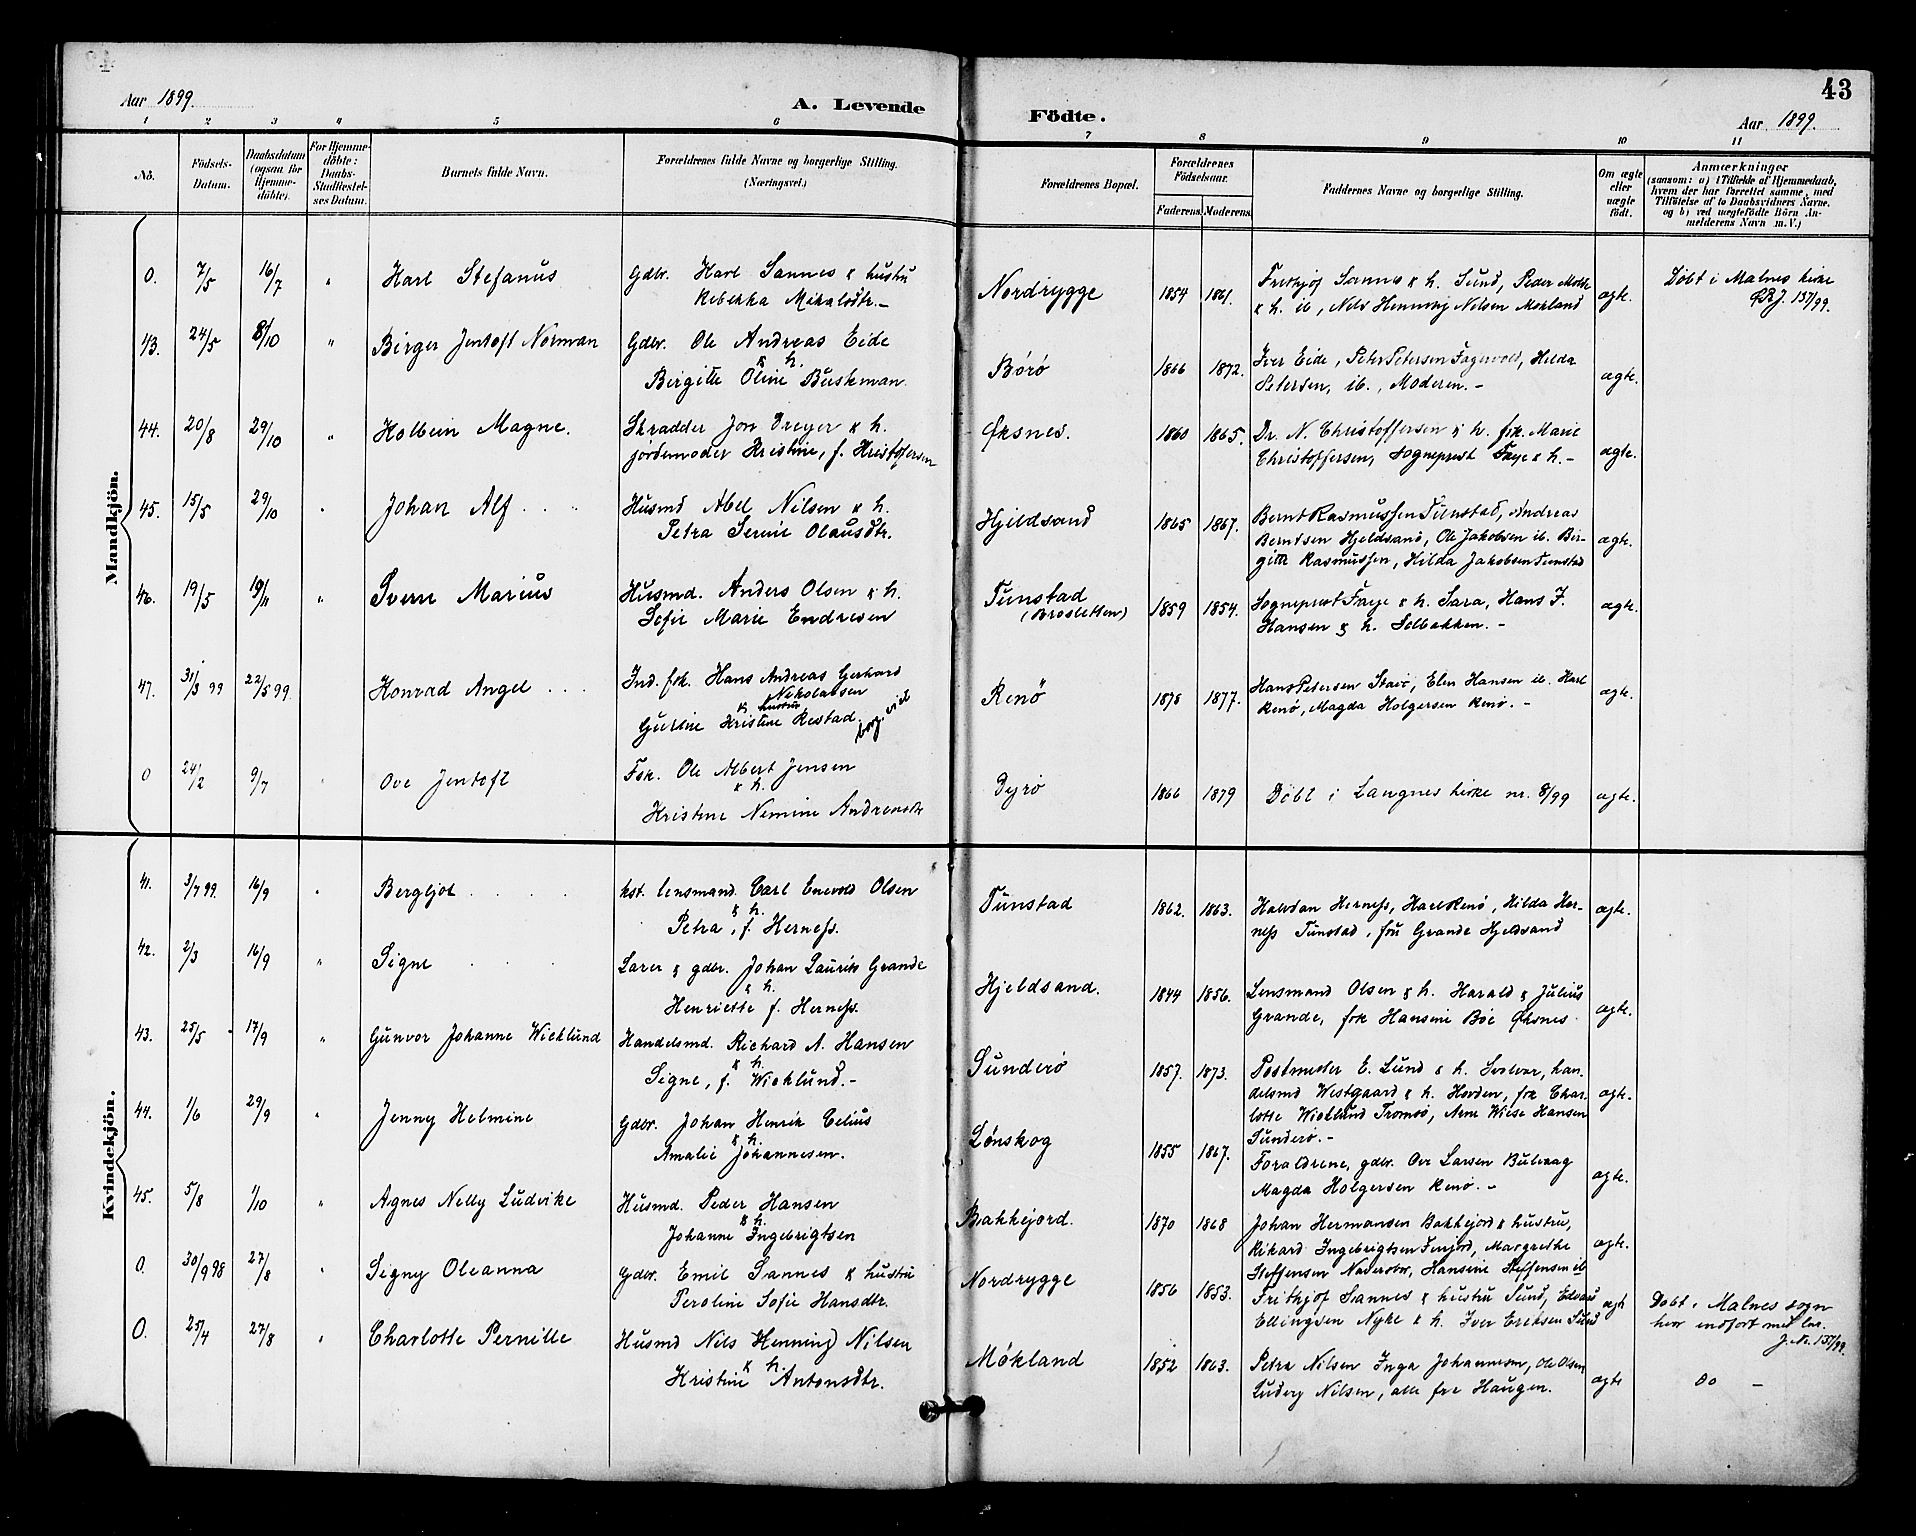 Aar 1899.
A. Levende
Födte.
Aar 1899.
43
1 2 3 4 5 6 7 8 9 10 11
No.
Födsels-
Datum.
Daabsdatum
(ogsaa for
Hjemme-
döbte).
For Hjemme-
döbte:
Daabs-
Stadfæstel-
ses Datum.
Barnets fulde Navn.
Forældrenes fulde Navne og borgerlige Stilling.
(Næringsvei.)
Forældrenes Bopæl.
Forældrenes
Födselsaar.
Faderens. Moderens.
Faddernes Navne og borgerlige Stilling.
Om ægte
eller
uægte
födt.
Anmærkninger
(saasom: a) i Tilfælde af Hjemmedaab,
hvem der har forrettet samme, med
Tilföielse af to Daabsvidners Navne,
og b) ved uægtefödte Börn An-
melderens Navn m. V.)
Mandkjön.
0. 7/5 16/7 " Karl Stefanus
Gdbr. Karl Sannes & hustru
Rebekka Mikalsdtr. –
Nordrygge 1854 1861.
Frithjof Sannes & h. Sund, Peder
& h. ib, Nils Henning Nilsen Mokland
ægte.
Döbt i Malnes kirke
J. 137/99.
43. 24/5 8/10 " Birger Jentoft Norman
Gdbr. Ole Andreas Eide
& h.
Birgitte Oline Buskman
Börö 1866 1872.
Iver Eide, Peter Petersen Fagervold, Hilda
Petersen, ib., Moderen. –
ægte.
44. 20/8 29/10 " Holbein Magne.
Skrædder Jon Dreyer & h.
jordemoder Kristine, f. Kristoffersen
Øksnes. 1860 1865.
Dr. N. Christoffersen & h. frk. Marie
Christoffersen, Sogneprest Faye & h. –
ægte.
45. 15/5 29/10 " Johan Alf
Husmd Abel Nilsen & h.
Petra Serine Olausdtr.
Hjeldsand 1865 1867.
Bernt Rasmussen Tunstad, Andreas
Berntsen Hjeldsand, Ole Jakobsen ib. Bir-
gitte Rasmussen, Hilda Jakobsen Tunstad
ægte.
46. 19/5 19/11 " Sverre Marius
Husmd. Anders Olsen & h.
Sofie Marie Endresen
Tunstad
(Brosletten) 1859 1854.
Sogneprest Faye & h. Sara, Hans J.
Hansen & h. Solbakken. –
ægte.
47. 31/3 99 22/5 99. Konrad Angel
Ind. fsk. Hans Andreas Gerhard
Nikolaisen
& hustru
Gurine Kristine Restad. borg. viet
Renö 1878 1877.
Hans Petersen Staví, Elen Hansen ib. Karl
Renö, Magda Holgersen Renö. –
ægte.
0 24/2 9/7 " Ove Jentoft
Fsk. Ole Albert Jensen
& h.
Kristine Nimine Andreasdtr
Dyrö 1866 1879
Döbt i Langnes kirke nr. 8/99
ægte.
Kvindekjön.
41. 3/7 99. 16/9 " Bergljot
kst. lensmand Carl Enevold Olsen
& h.
Petra, f. Herness.
Tunstad 1862. 1863.
Halvdan Herness, Karl Renö, Hilda Her-
ness Tunstad, fru Grande Hjeldsand
ægte.
42. 2/3 16/9 " Signe
Lærer & gdbr. Johan Laurits Grande
& h.
Henriette f. Herness.
Hjeldsand. 1844 1856.
Lensmand Olsen & h. Harald & Julius
Grande, frk Hansine Böe Øksnes.
ægte.
43. 25/5 17/9 " Gunvor Johanne Wicklund
Handelsmd. Richard A. Hansen
& h.
Signe, f. Wicklund. –
Sunderö 1857. 1873.
Postmester E. Lund & h. Svolvær, han-
delsmd Westgaard & h. Hovden, frk Char-
lotte Wicklund Tromsö, Arne Wiese Hansen
Sunderö. –
ægte.
44. 1/6 29/9 " Jenny Helmine
Gdbr. Johan Henrik Celius
& h.
Amalie Johannesen.
Lönskog 1855 1867.
Forældrene, gdbr. Ove Larsen Bulvaag
Magda Holgersen Renö. –
ægte.
45. 5/8 1/10 " Agnes Nelly Ludvike
Husmd. Peder Hansen
& h.
Johanne Ingebrigtsen
Bakkejord. 1870 1868
Johan Hermansen Bakkejord & hustru,
Rikard Ingebrigtsen Finfjord, Margrethe
Steffensen, Hansine Steffensen ib
ægte.
0. 30/9 98 27/8 " Signy Oleanna
Gdbr. Emil Sannes & hustru
Peroline Sofie Hansdtr.
Nordrygge 1856 1853.
Frithjof Sannes & hustru Sund, Edvard
Ellingsen Nyke & h. Iver Eriksen Sund
ægte
Döbt i Malnes sogn
hvor indfört med lnr.
J. Nr. 137/99.
0. 25/4 27/8 " Charlotte Pernille
Husmd Nils Henning Nilsen
& h.
Kristine Antonsdtr.
Mökland 1852 1863.
Petra Nilsen Inga Johannesen, Ole Olsen
Ludvig Nilsen, alle fra Haugen.
ægte
Do –